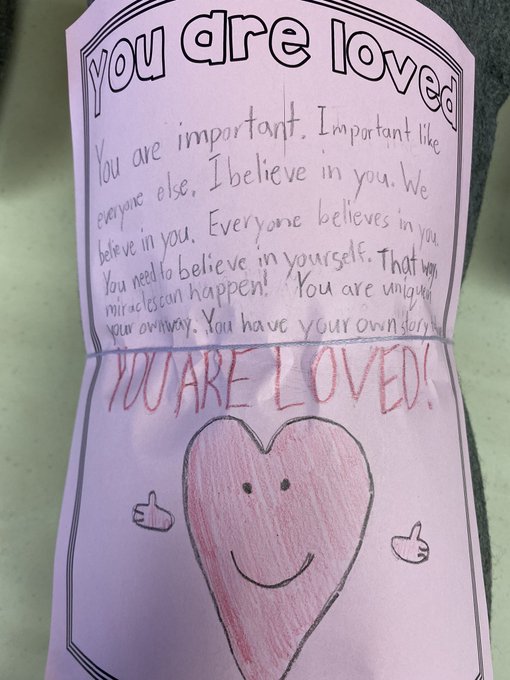 You are loved
You are important. Important like
everyone else. I believe in you. We
believe in you. Everyone believes in you.
You need to believe in yourself. That way
miracles can happen! You are unique in
your own way. You have your own story
YOU ARE LOVED!